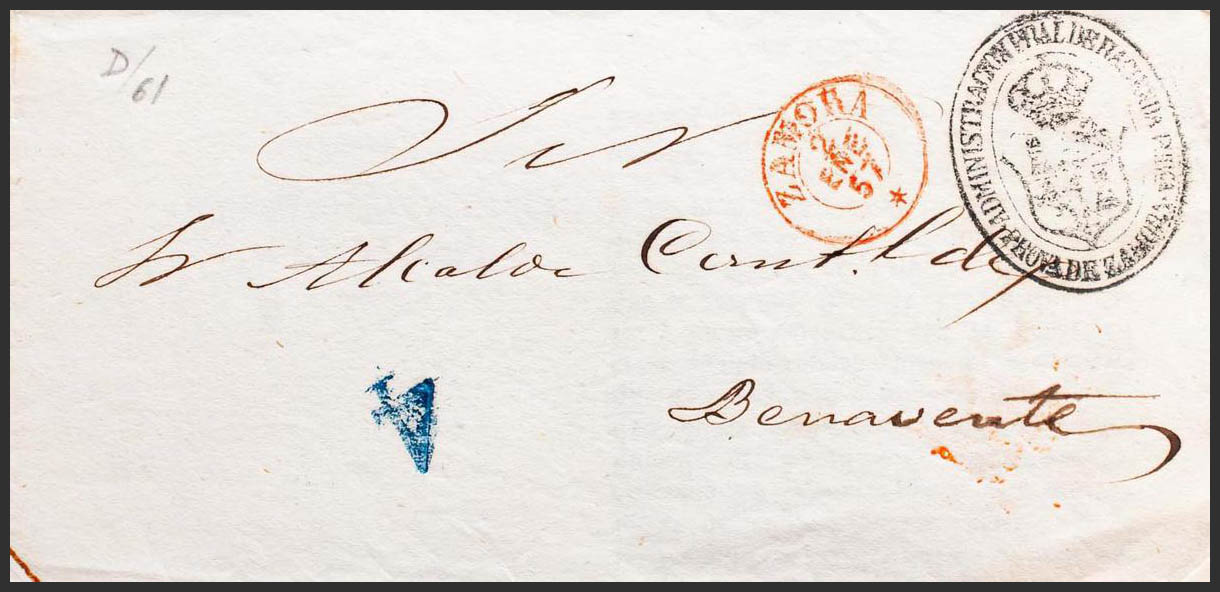 D/61
S. N.
ZAMORA
ADMINISTRACION PRAL DE HACIENDA PUBCA
PROVA DE ZAMORA
Sr Alcalde Constl. de
Benavente